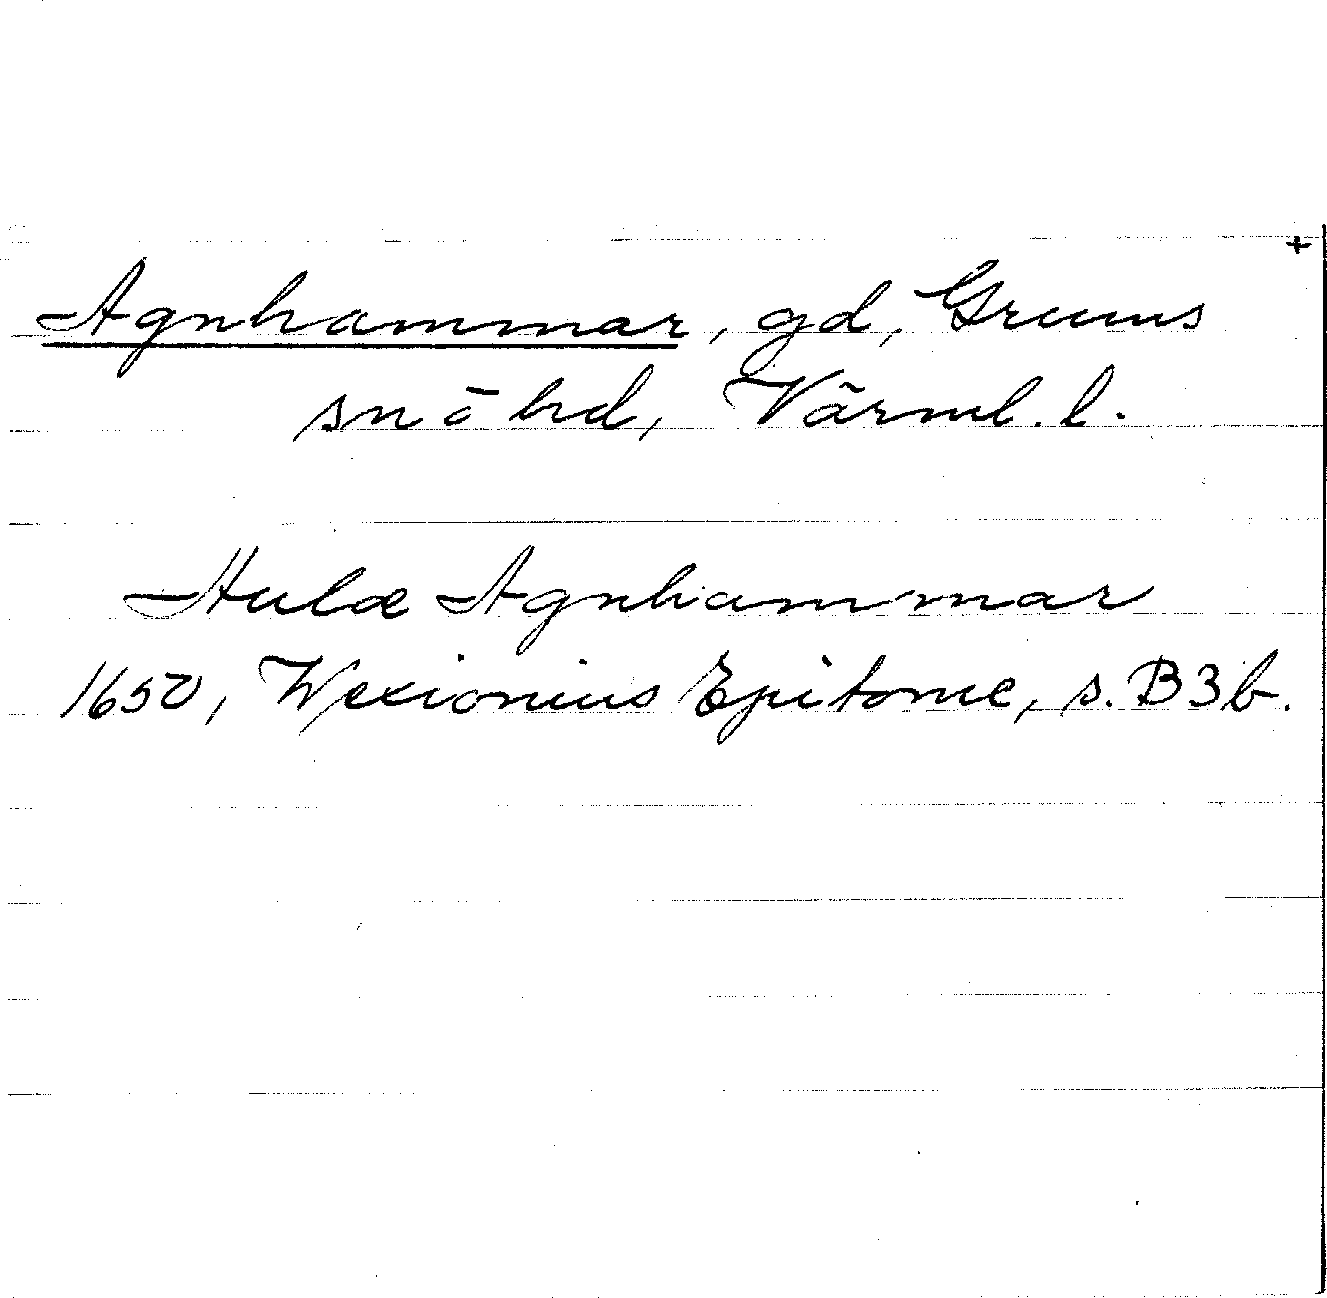 +
Agnhammar, gd, Grums
sn o hd, Värml. l.
Aulæ Agnhammar
1650, Wexionius Epitome, s. B3b.